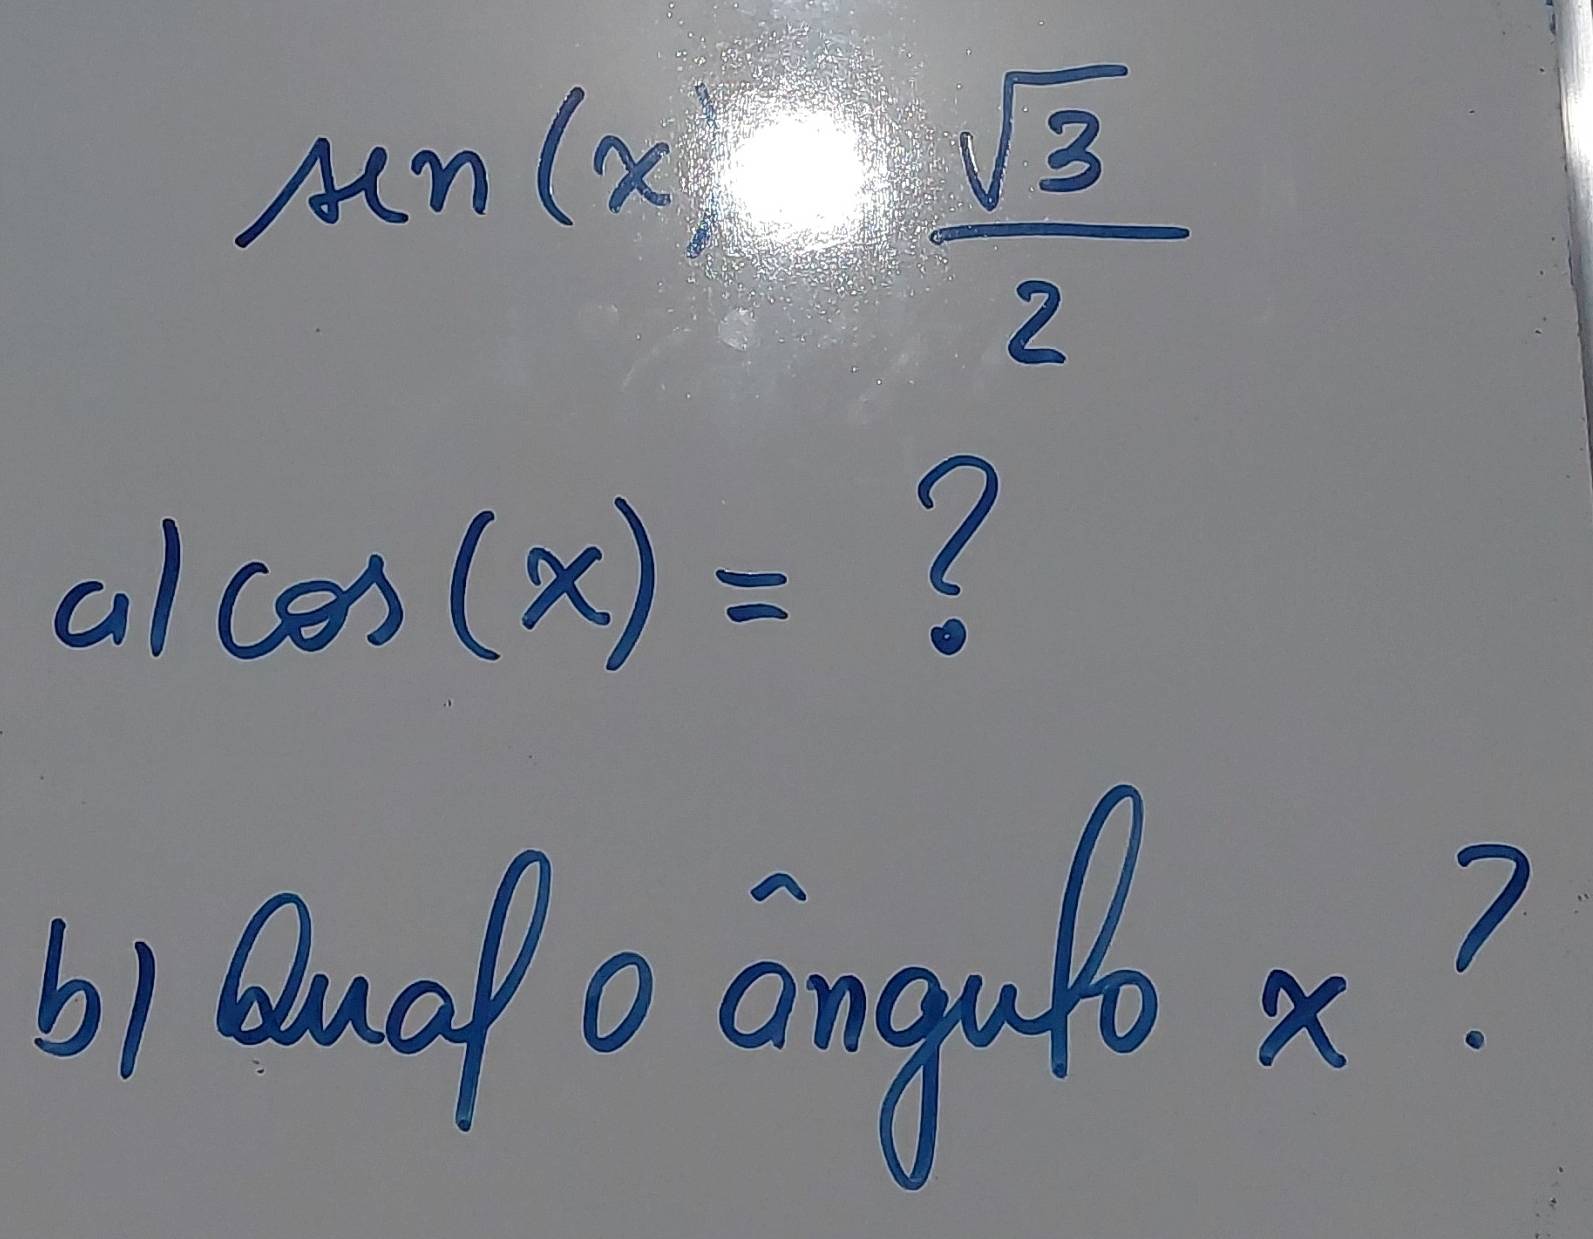 sen(x) √3/2
a) cos(x) = ?
b) Qual o ângulo x ?